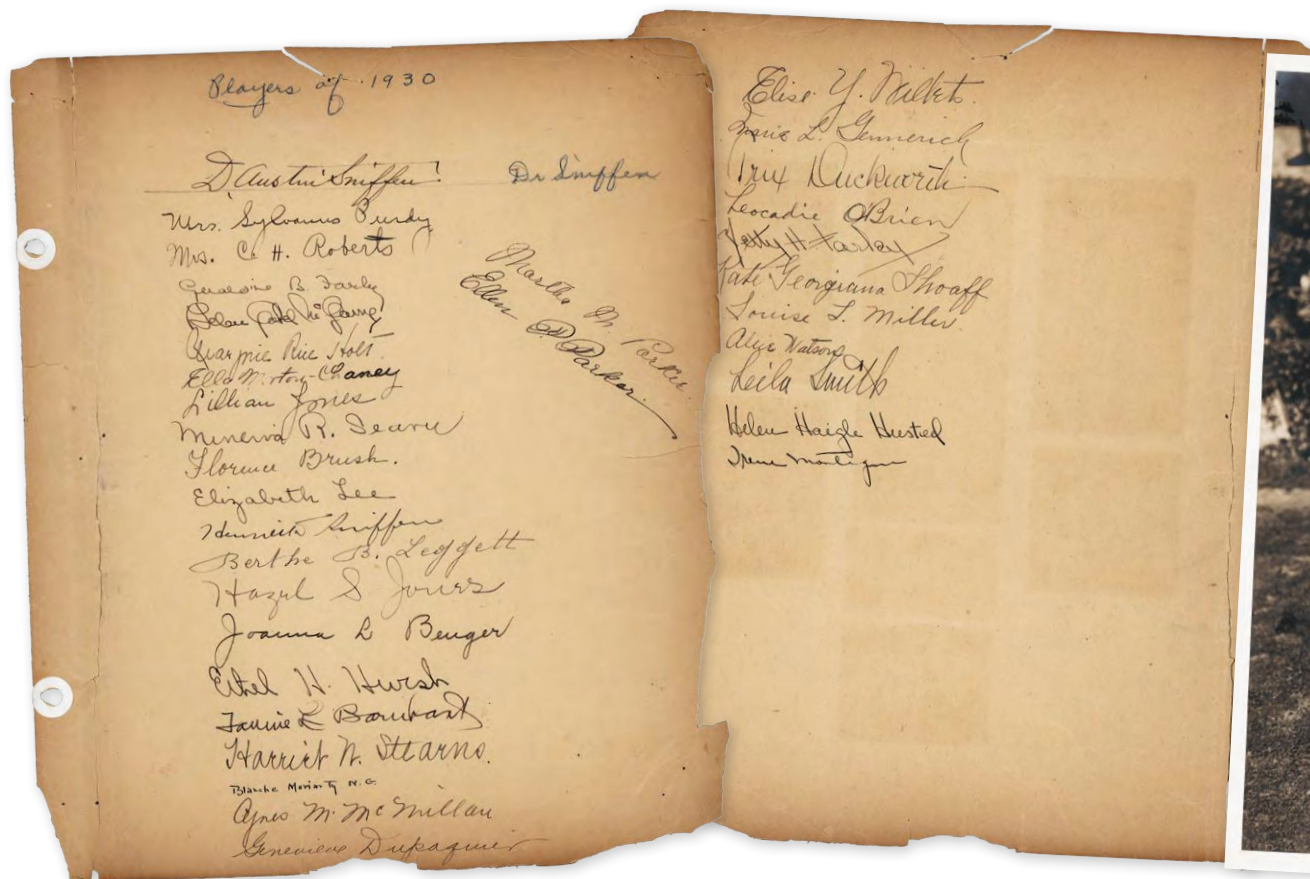 Players of 1930
D. Austin Sniffen
Dr Sniffen
Mrs. Sylvanus Purdy
Mrs. C. H. Roberts
Geraldine B. Farley
Helen
Rice Holt
Ella Morton-Chaney
Lillian Jones
Minerva R.
Florence Brush.
Elizabeth Lee
Henrietta Sniffen
Berthe B. Leggett
Hazel S Jones
Joanna L Benger
Ethel H. Hursh
Fannie L
Harriet N. Stearns.
Blanche Moriarty N.C.
Agnes M. McMillan
Genevieve Dupaquier
Martha M. Parker
Ellen P. Parker
Elise Y.
L. Gennerich
Trix Duckworth
Leocadie O'Brien
H. Farley
Kate Georgiana Shoaff
Louise L. Miller.
Alice Watson
Leila Smith
Helen Haigle Husted
Irene